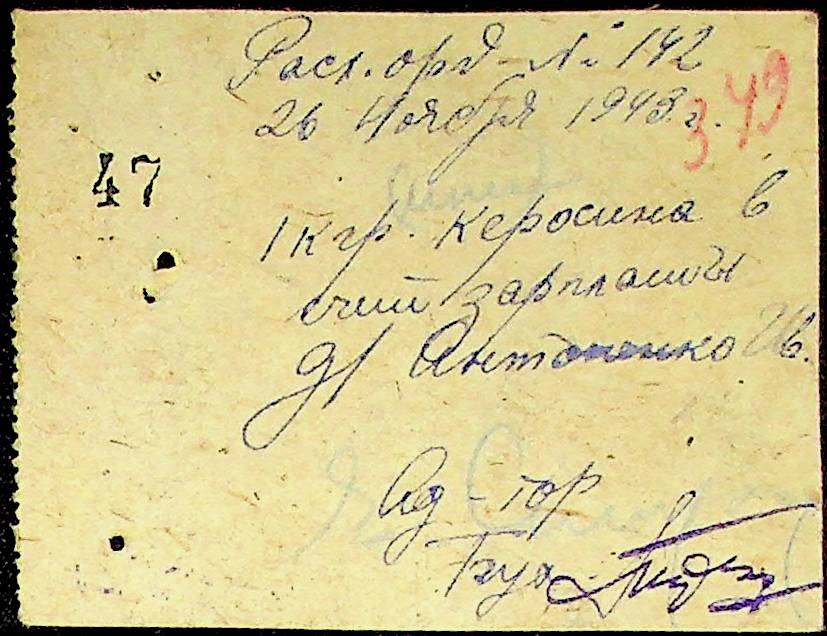 Расх. орд. № 142
26 Ноября 1943 г.
349
47
1 кгр. керосина в
счит зарплаты
д/ Антоненко Ив.
Ад-тор
Бух